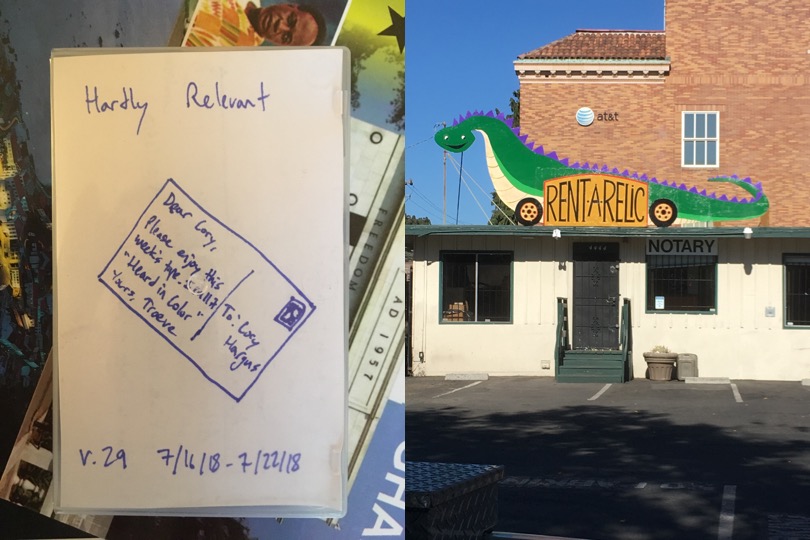 Hardly Relevant
Dear Cory,
Please enjoy this
week's
"Heard in Color"
Yours, Troeve
To: Cory
Hargus
v. 29 7/16/18 - 7/22/18
FREEDOM
AD 1957
OHA
at&t
RENT-A-RELIC
NOTARY